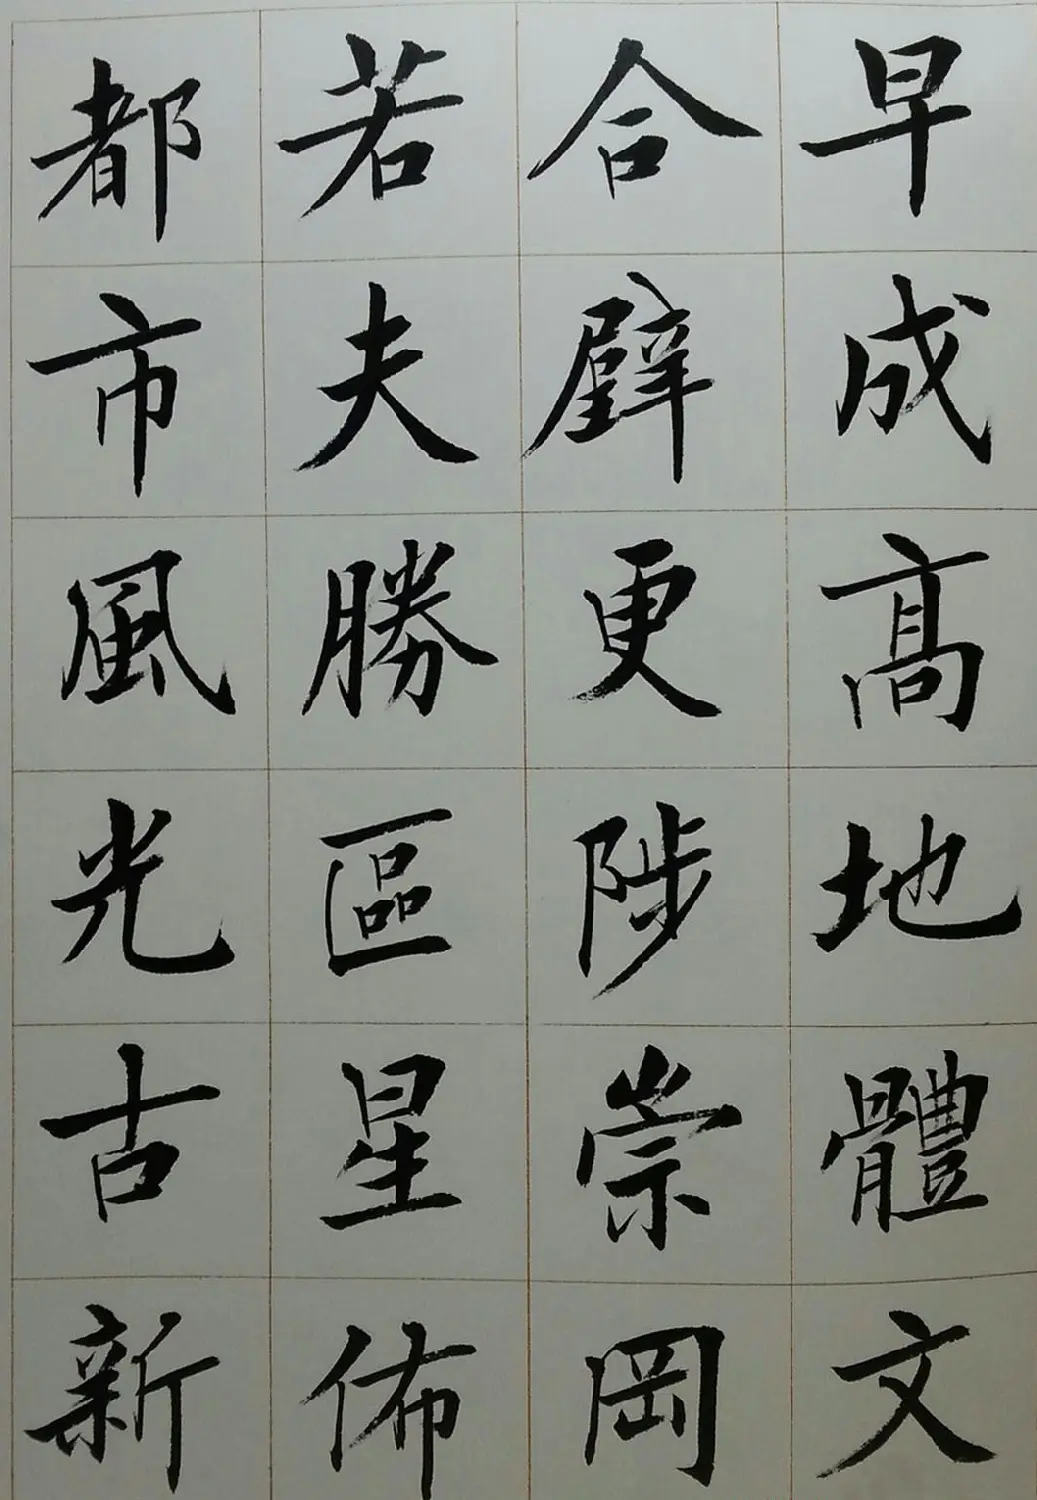 早成高地體文
合璧更陟崇岡
若夫勝區星佈
都市風光古新